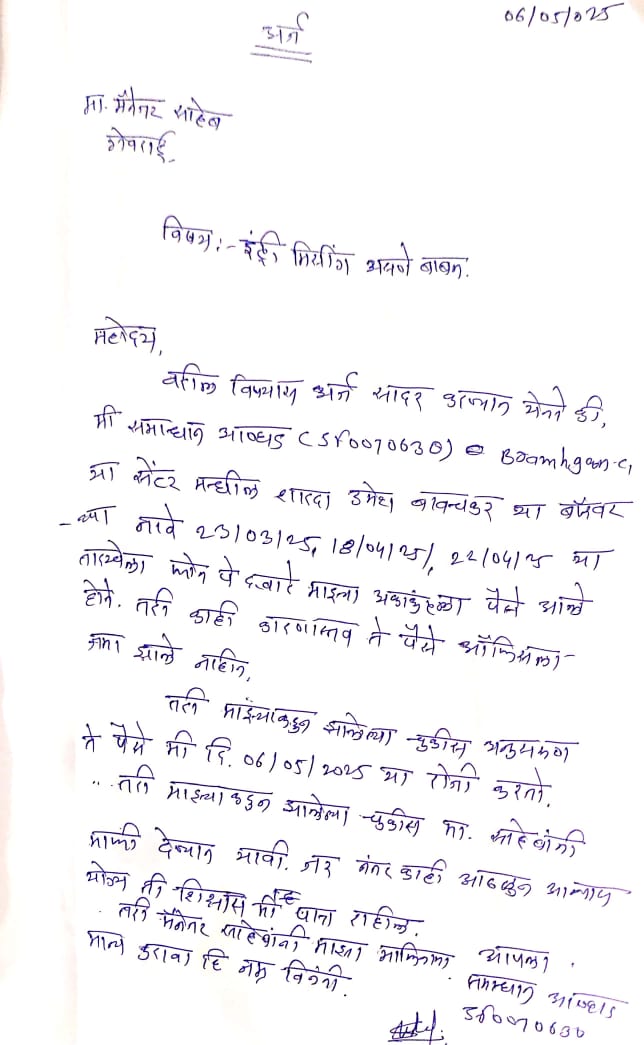 06/05/025
अर्ज
मा. मॅनेजर साहेब
गेवराई.
विषय :- इंट्री मिसींग असणे बाबत.
महोदय,
वरील विषयास अर्ज सादर करण्यात येतो की,
मी समाधान आव्हाड (SF0070630)
या सेंटर मधील शारदा उमेश या बॉरोवर
-च्या नावे 23/03/25, 18/04/25, 22/04/25 या
तारखेला फोन पे द्वारे माझ्या अकाऊंटला पैसे आले
होते. तरी काही कारणास्तव ते पैसे ऑफिसला
जमा झाले नाहीत,
तरी माझ्याकडुन झालेल्या चुकीस अनुसरून
ते पैसे मी दि. 06/05/2025 या रोजी करतो.
तरी माझ्याकडुन झालेल्या चुकीस मा. साहेबांनी
माफी देण्यात यावी. जर नंतर काही आढळुन आल्यास
योग्य ती शिक्षेस मी पात्र राहील.
तरी मॅनेजर साहेबांनी माझा माफीनामा
मान्य करावा हि नम्र विनंती.
आपला
समाधान आव्हाड
SF0070630